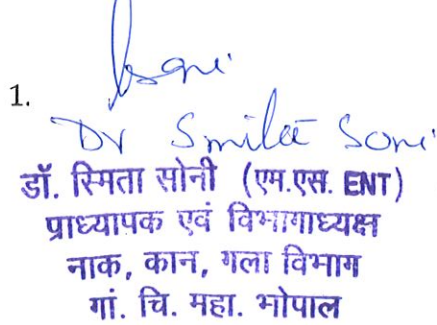 1.
Dr Smita Soni
डॉ. स्मिता सोनी (एम.एस. ENT)
प्राध्यापक एवं विभागाध्यक्ष
नाक, कान, गला विभाग
गां. चि. महा. भोपाल